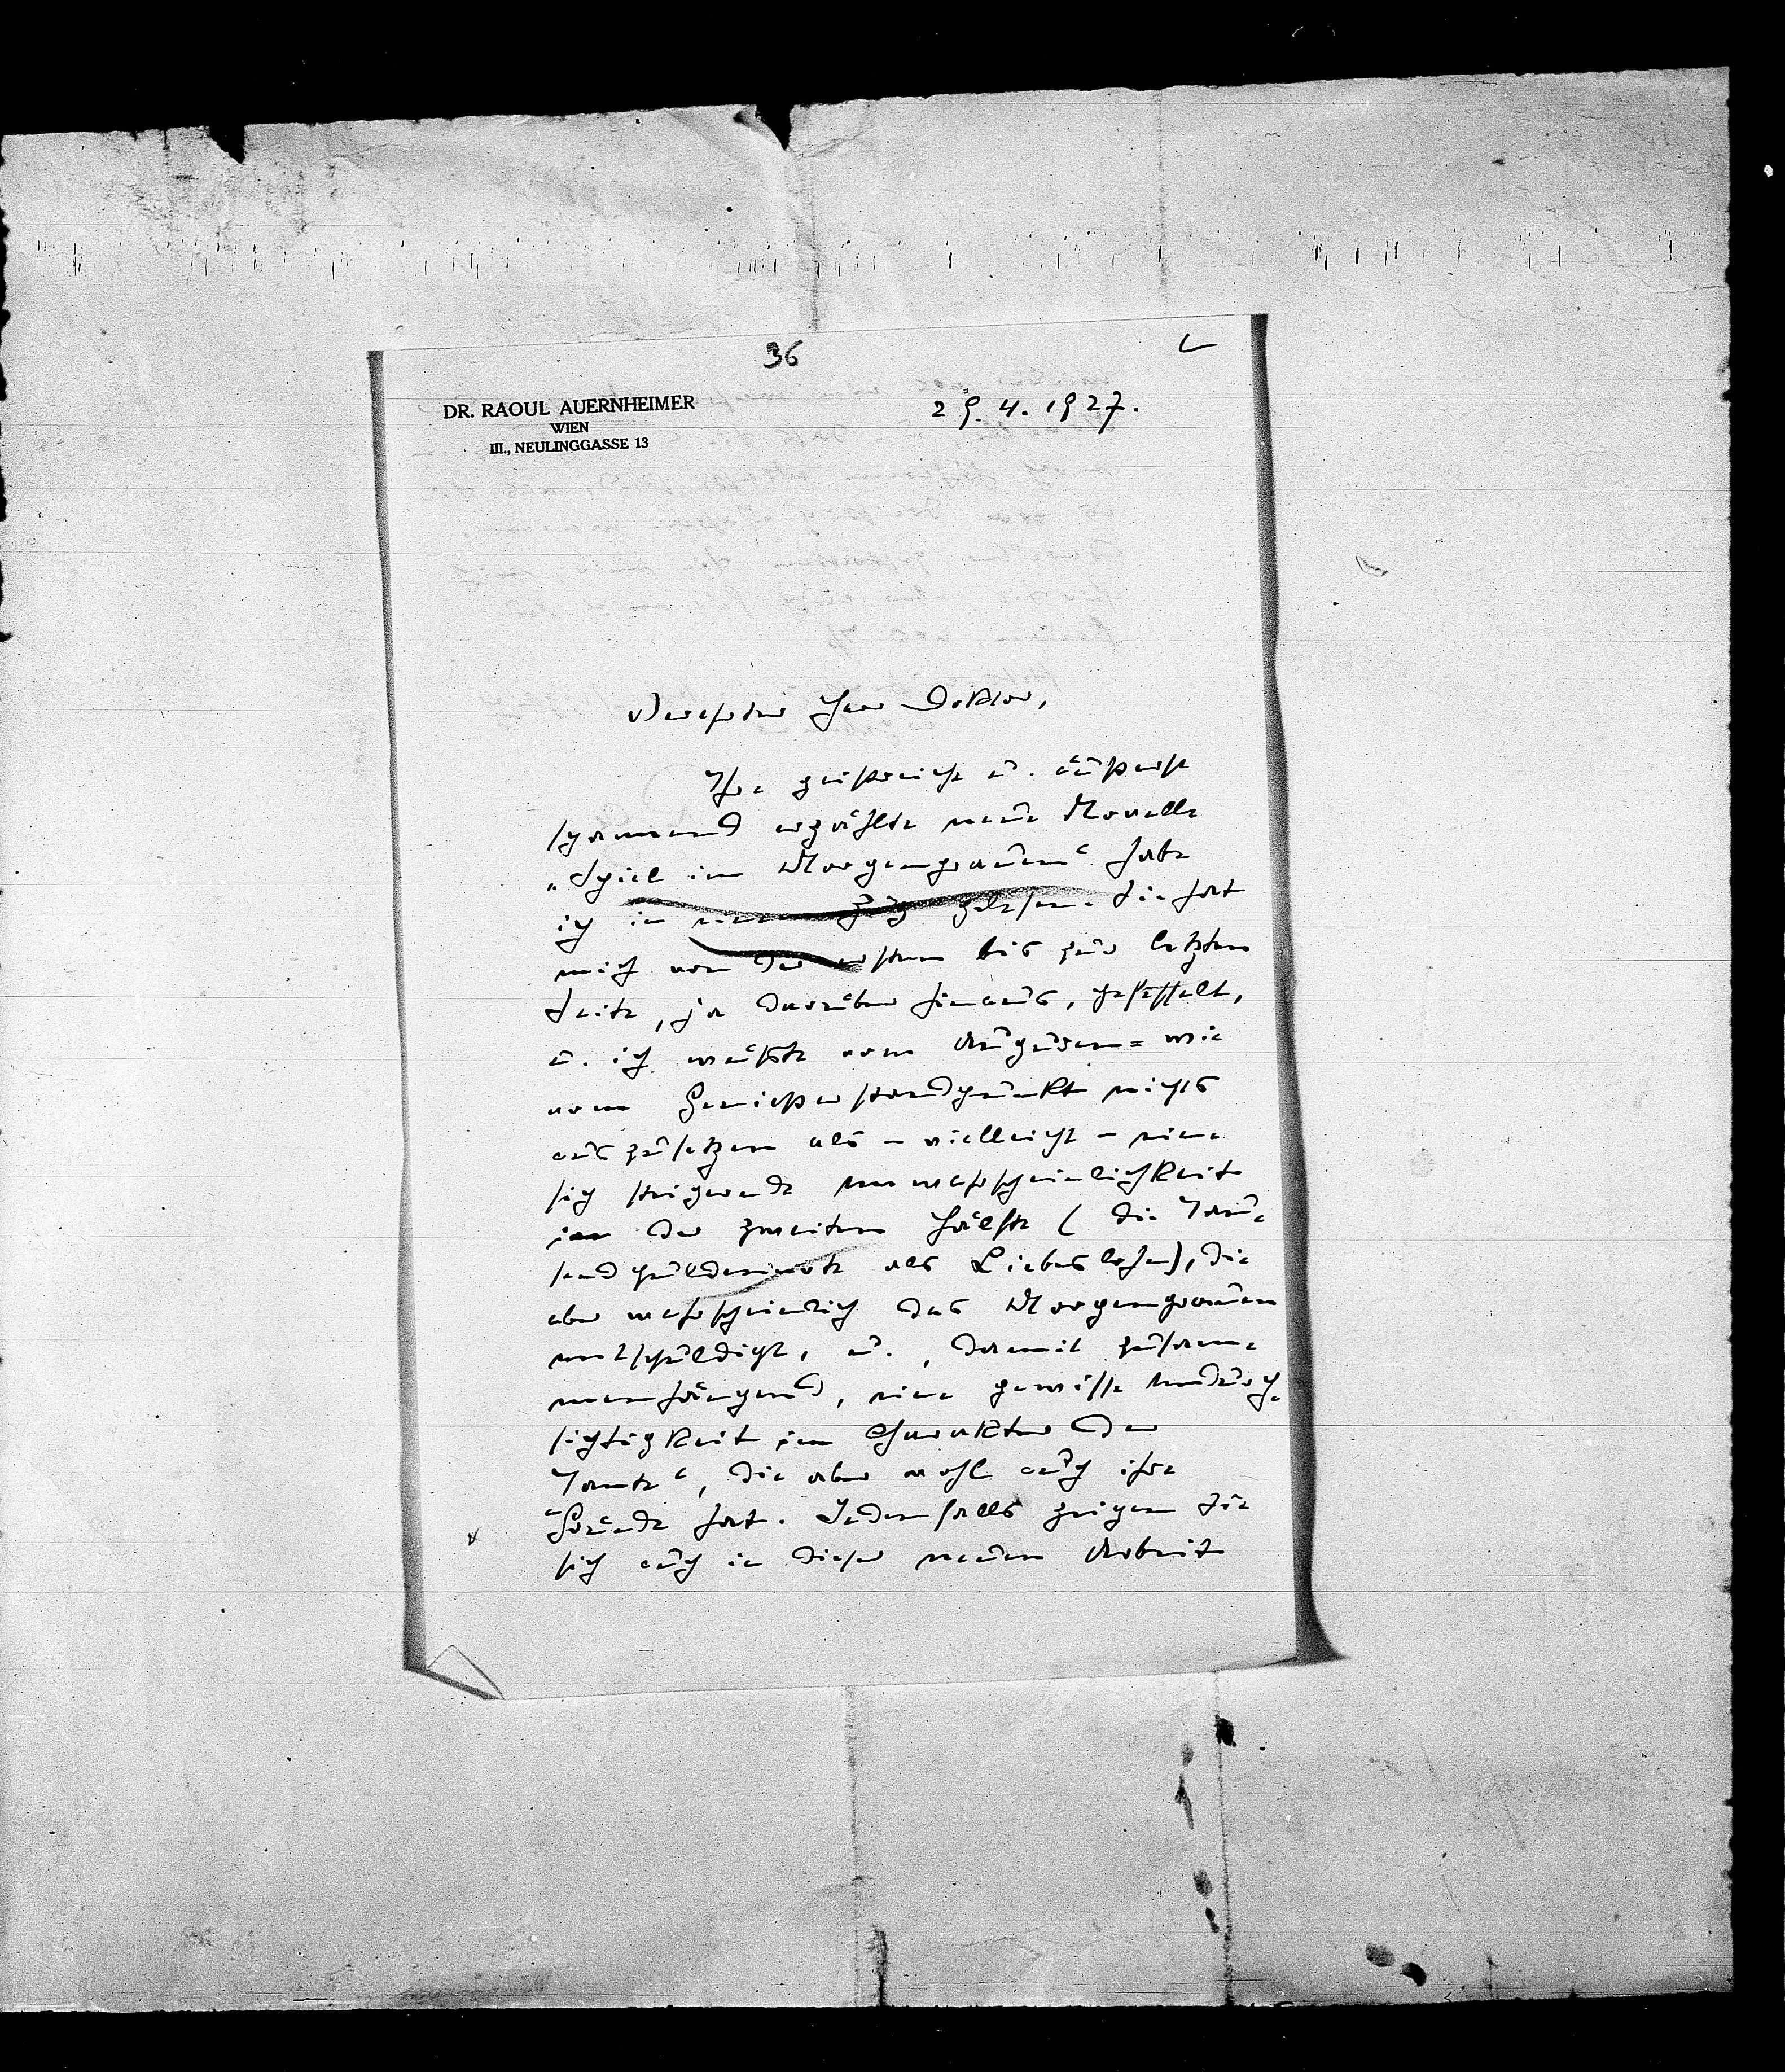 36
DR. RAOUL AUERNHEIMER
WIEN
III., NEULINGGASSE 13
29. 4. 1927.
Verehrter Herr Doktor,
Ihre geistreiche u. äußerst
spannend erzählte neue Novelle
„Spiel im Morgengrauen“ habe
ich in einem Zug gelesen. Sie hat
mich von der ersten bis zur letzten
Seite, ja darüber hinaus, gefesselt,
u. ich wüßte vom Kunst= wie
vom Genießerstandpunkt nichts
auszusetzen als – vielleicht – eine
sich steigernde Unwahrscheinlichkeit
in der zweiten Hälfte (die Tau-
sendguldennote als Liebeslohn), die
aber wahrscheinlich das Morgengrauen
entschuldigt, u., damit zusam-
menhängend, eine gewisse Undurch-
sichtigkeit im Charakter der
„Tante“, die aber wohl auch ihre
Gründe hat. Jedenfalls zeigen Sie
sich auch in dieser neuen Arbeit